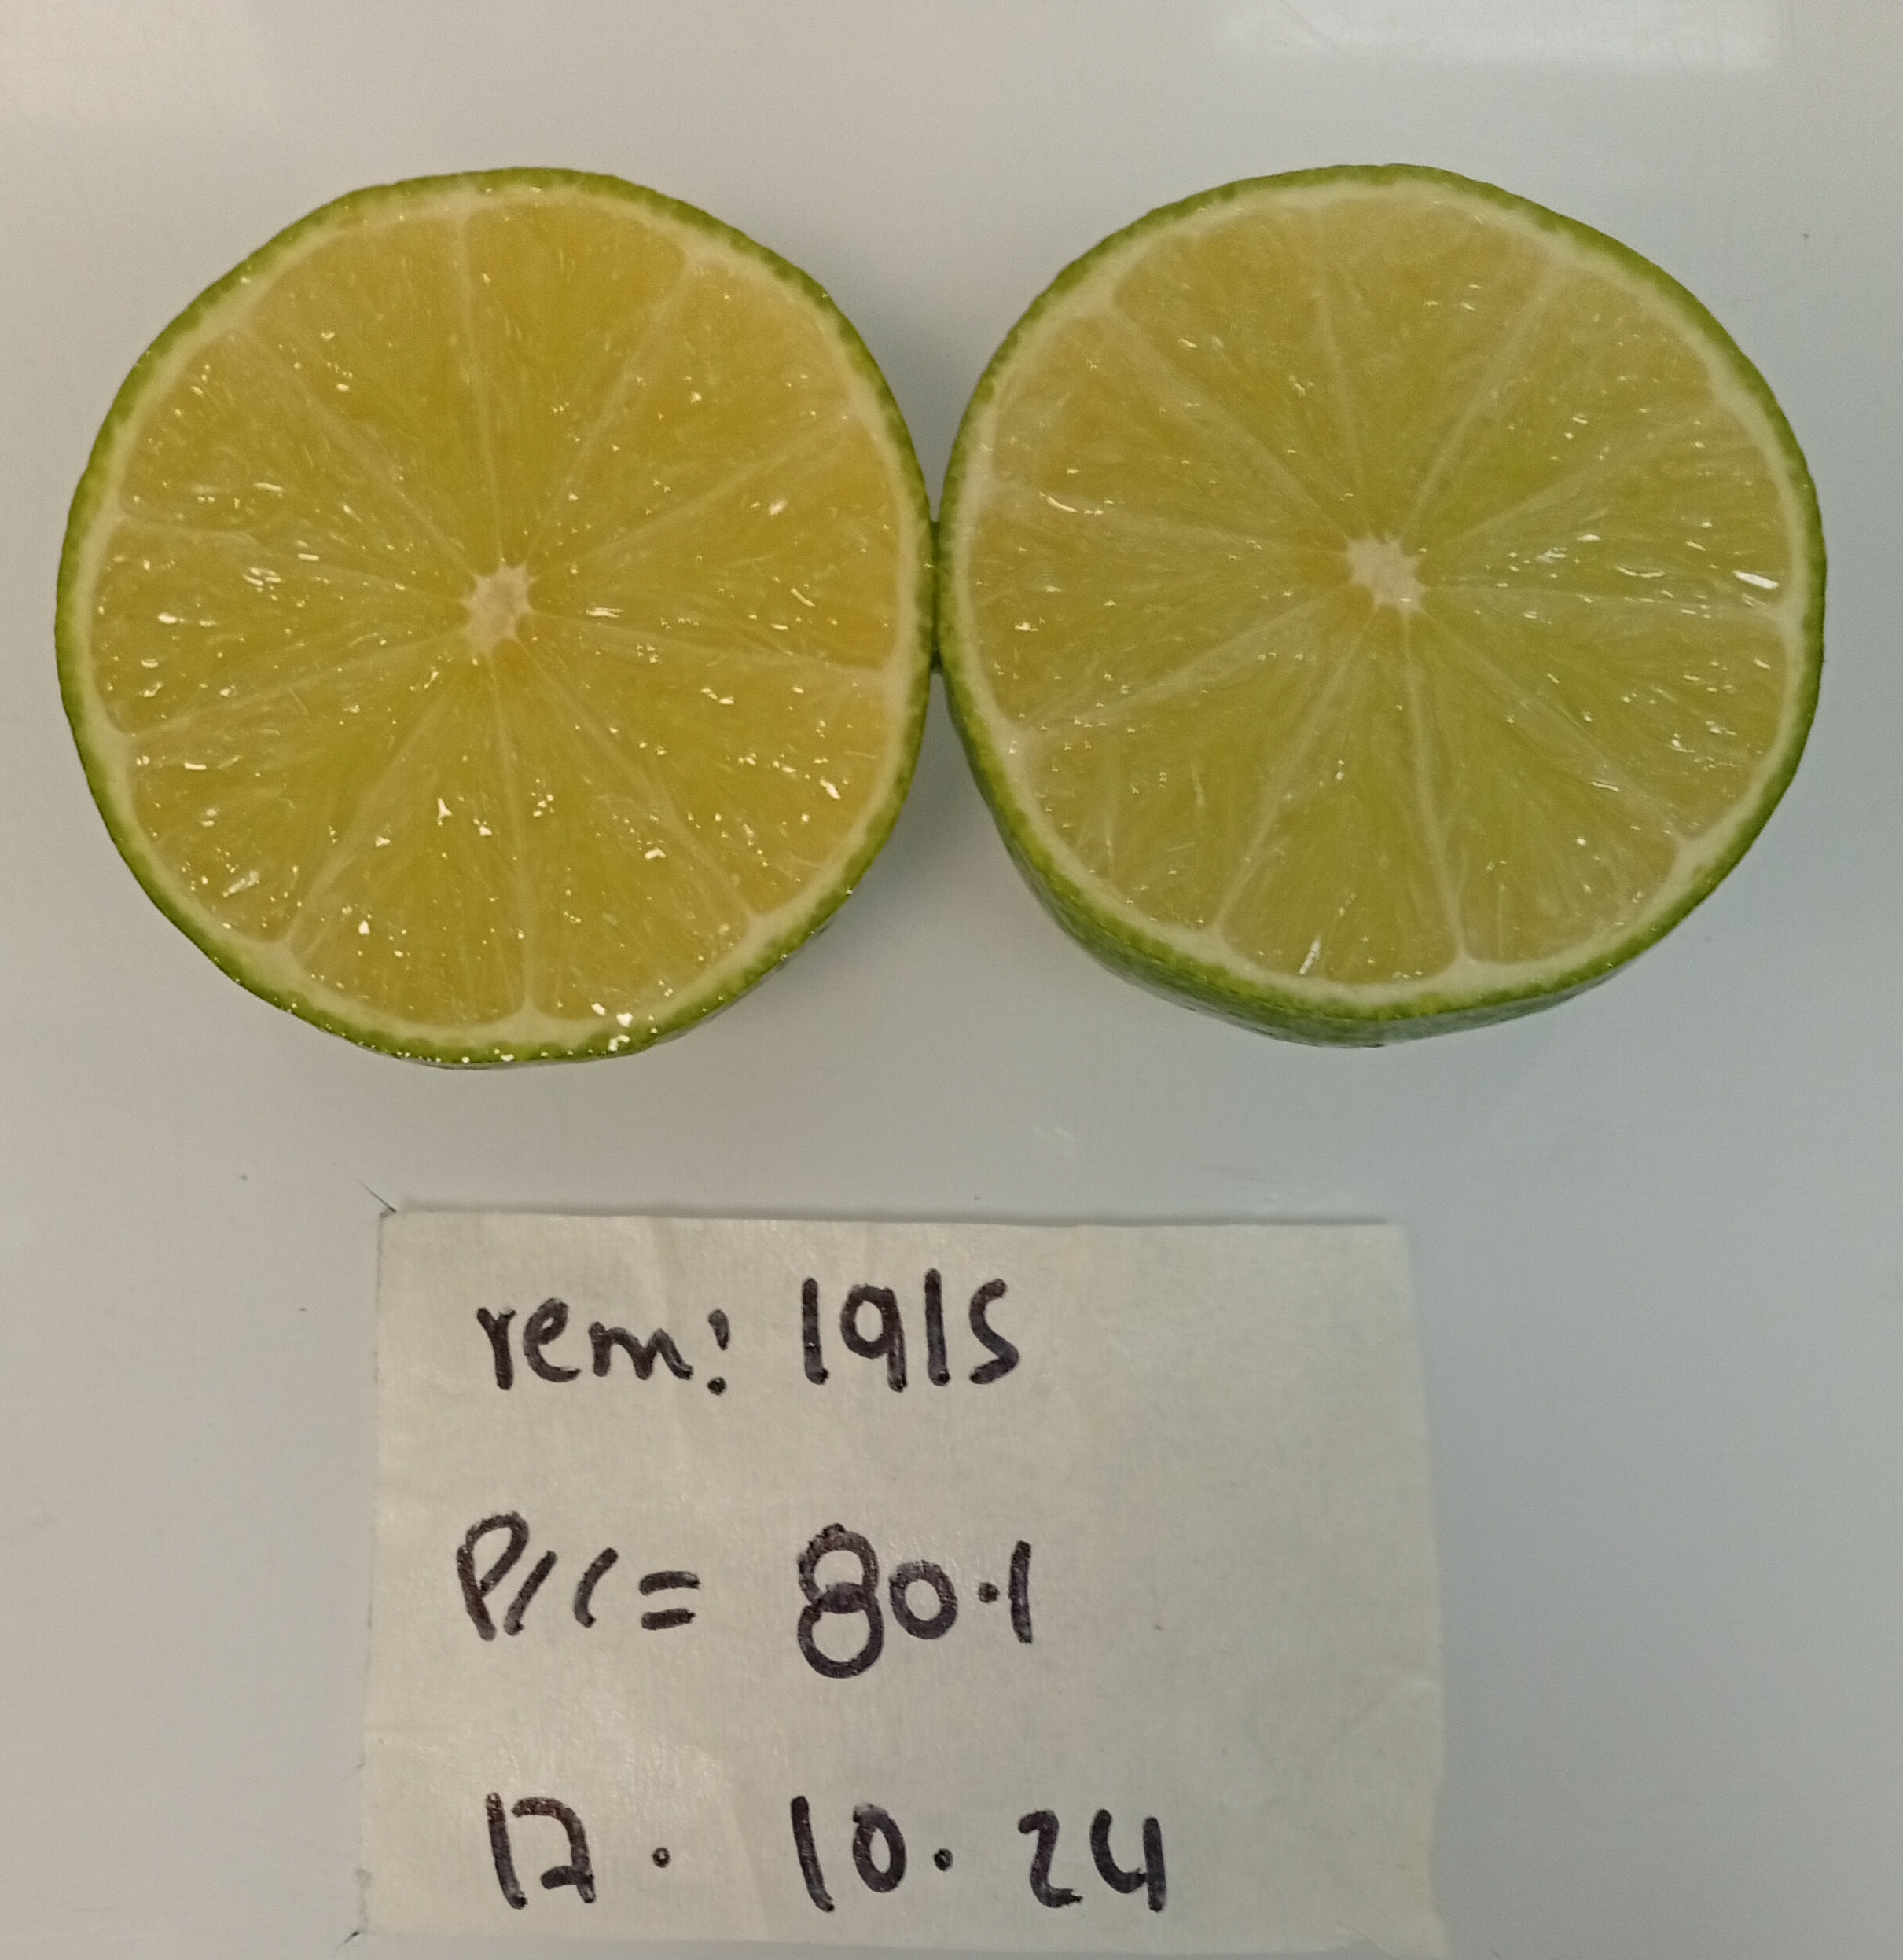 rem: 1915
P/C= 80.1
17. 10. 24